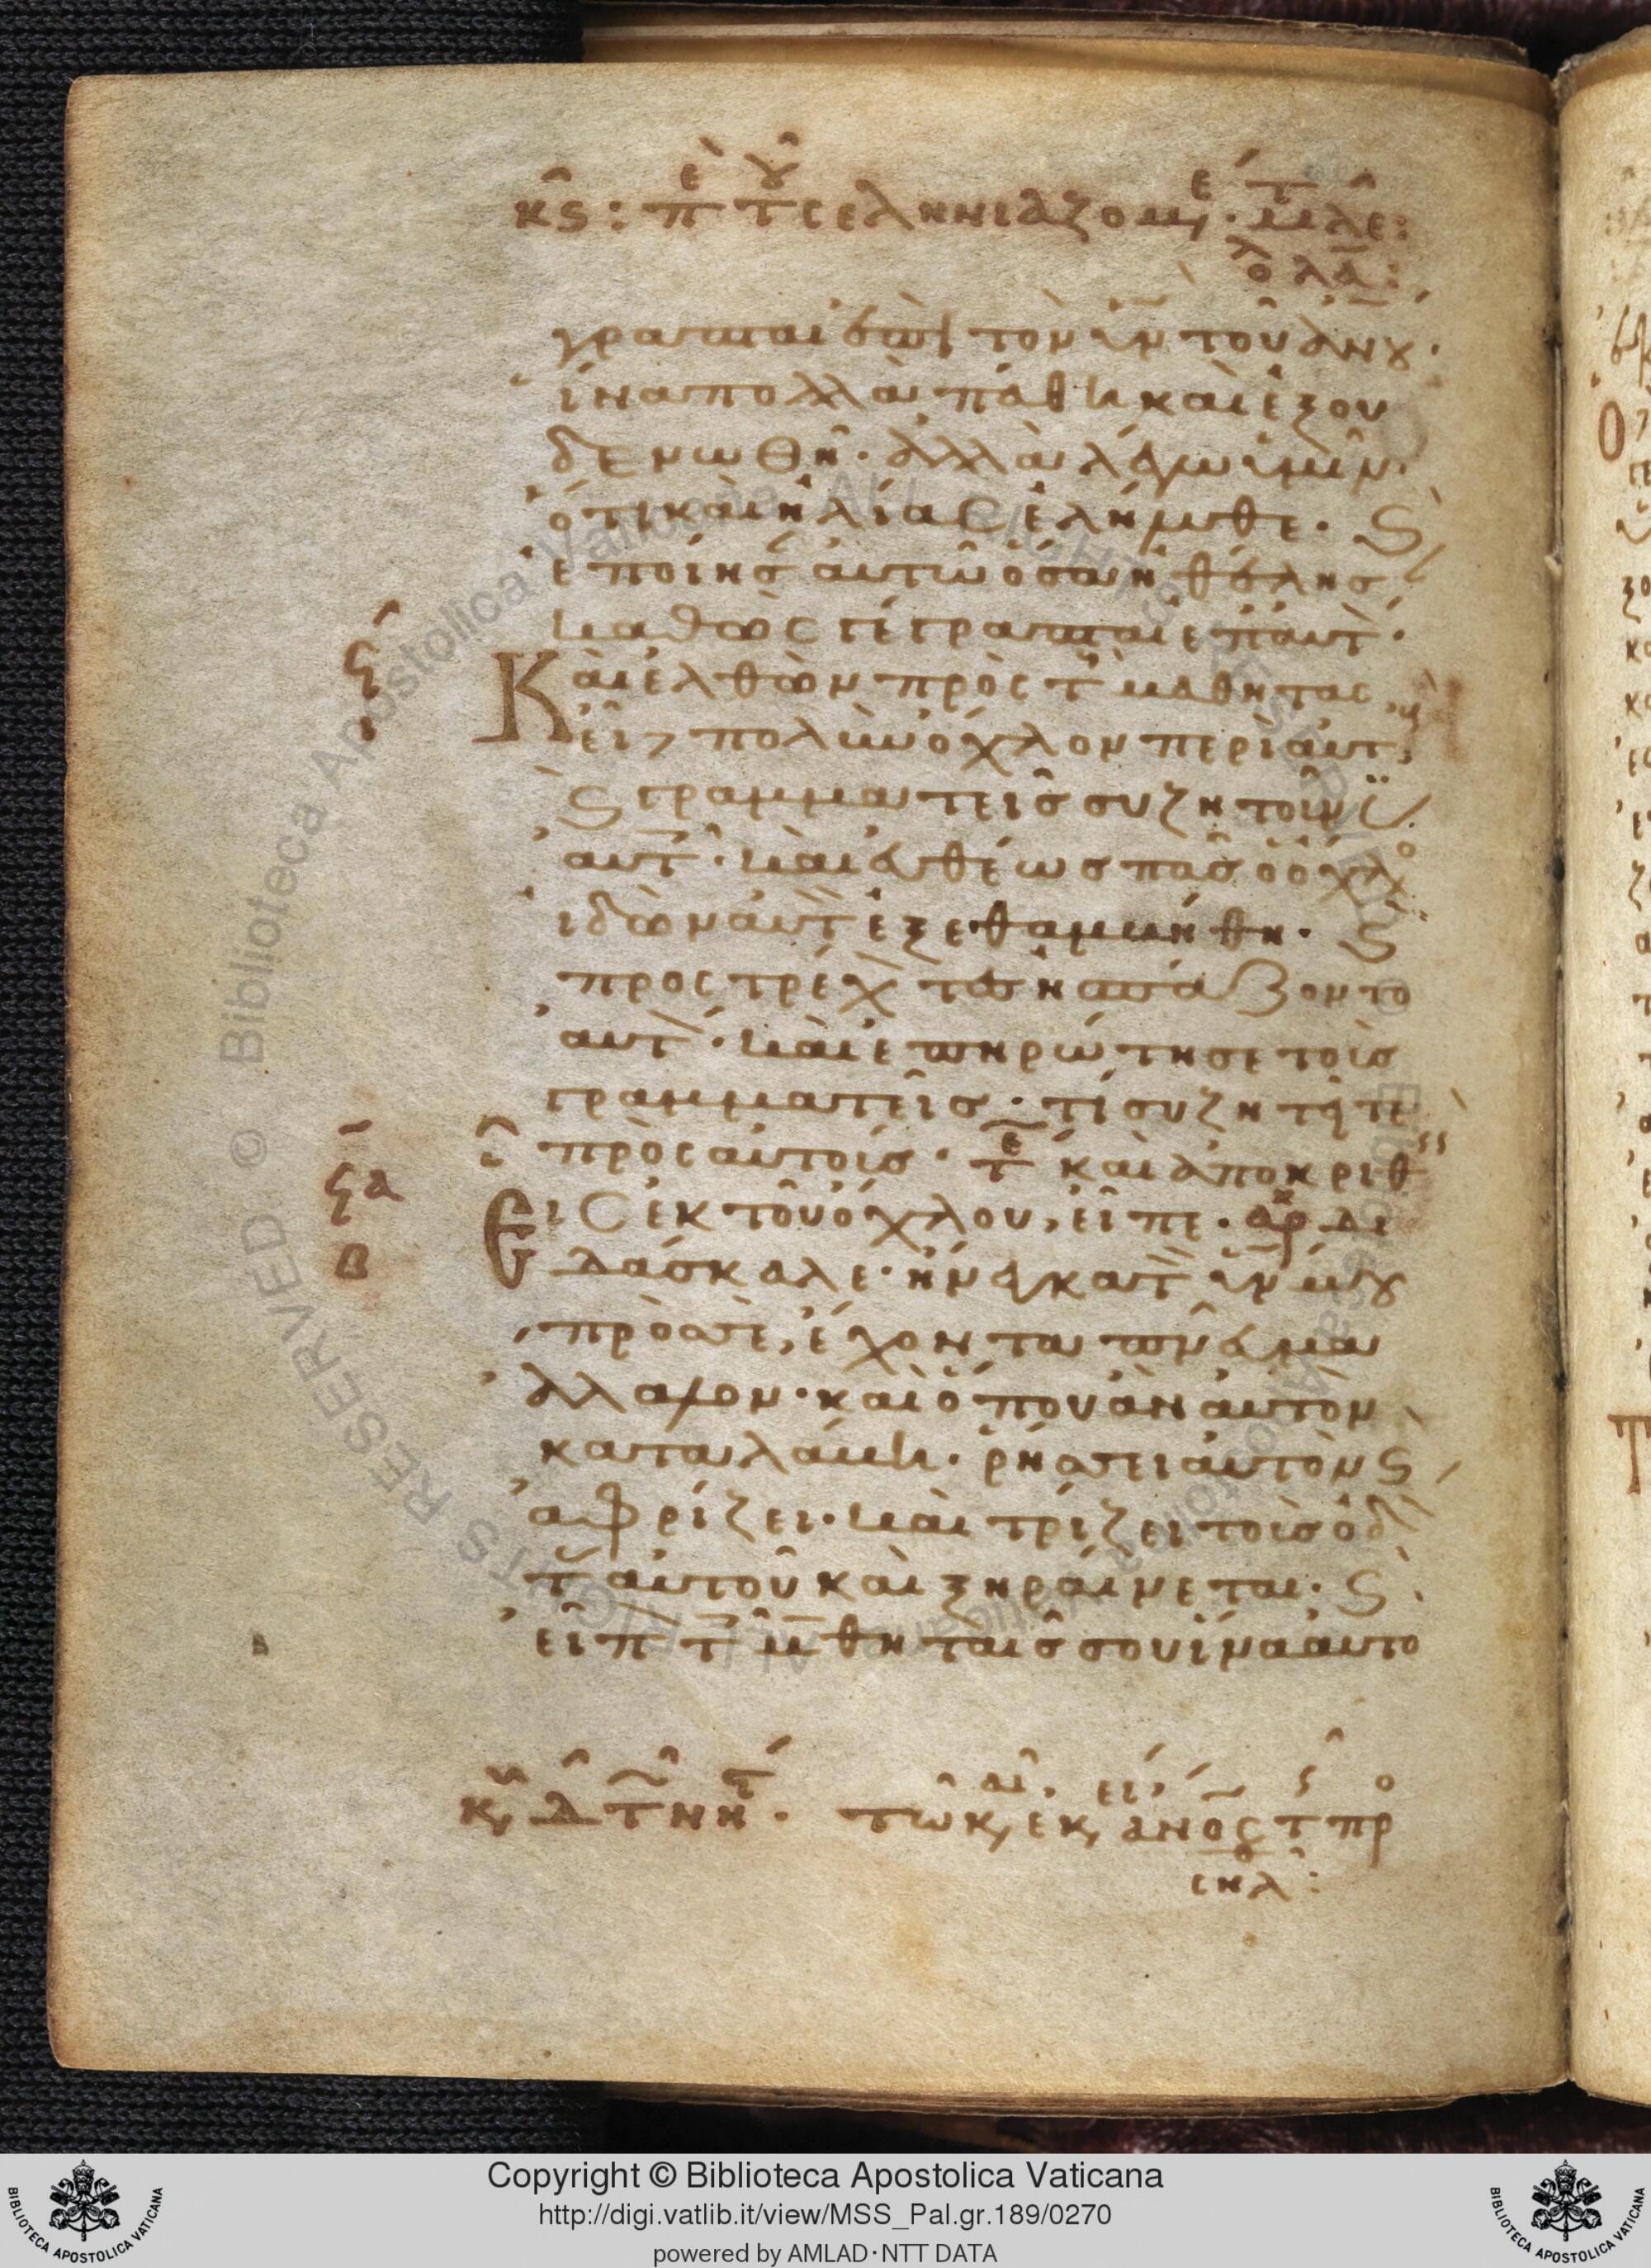 κϛ: πε τοῦ σεληνιαζομε. μτ λε:
γραπται ἐπὶ τὸν υν τοῦ ανου.
ἵνα πολλὰ πάθη καὶ ἐξου
δενωθῆ. ἀλλὰ λέγω ὑμῖν.
ὅτι καὶ ηλίας ἐλήλυθε. ϛ
ἐποίησ αὐτῶ ὅσα ἠθέλησ
καθὼς γέγραπται ἐπ αὐτ.
Καὶ ἐλθὼν πρὸς τ μαθητας
εἶδ πολὺν ὄχλον περὶ αὐτ,
ϛ γραμματεῖσ συζητοῦν
αὐτ. καὶ εὐθέωσ πᾶσ ὁ ὄχλο
ἰδὼν αὐτ ἐξεθαμβήθη. ϛ
προστρέχ τεσ ἠσπάζοντο
αὐτ. καὶ ἐπηρώτησε τοὺσ
γραμματεῖσ. τί συζητεῖτε
πρὸς αὐτούσ. τε καὶ ἀποκριθ
Εις ἐκ τοῦ ὄχλου, εἶπε. αρχ δι
δάσκαλε. ἤνεγκα τ υν μου
πρὸσ σε, ἔχοντα πνεῦμα
ἄλαλον. καὶ ὅπου ἂν αὐτὸν
καταλάβη. ῥήσσει αὐτὸν ϛ
ἀφρίζει. καὶ τρίζει τοὺσ ὀδ
τ αὐτοῦ καὶ ξηραίνεται. ϛ
εἶπ τ μαθηταῖσ σου ἵνα αὐτο
κυ δ τ νη. τῶ κ, εκ, ανοσ τ πρ
ϛ
ϛα
β
Copyright © Biblioteca Apostolica Vaticana
http://digi.vatlib.it/view/MSS_Pal.gr.189/0270
powered by AMLAD·NTT DATA
BIBLIOTECA APOSTOLICA VATICANA
BIBLIOTECA APOSTOLICA VATICANA